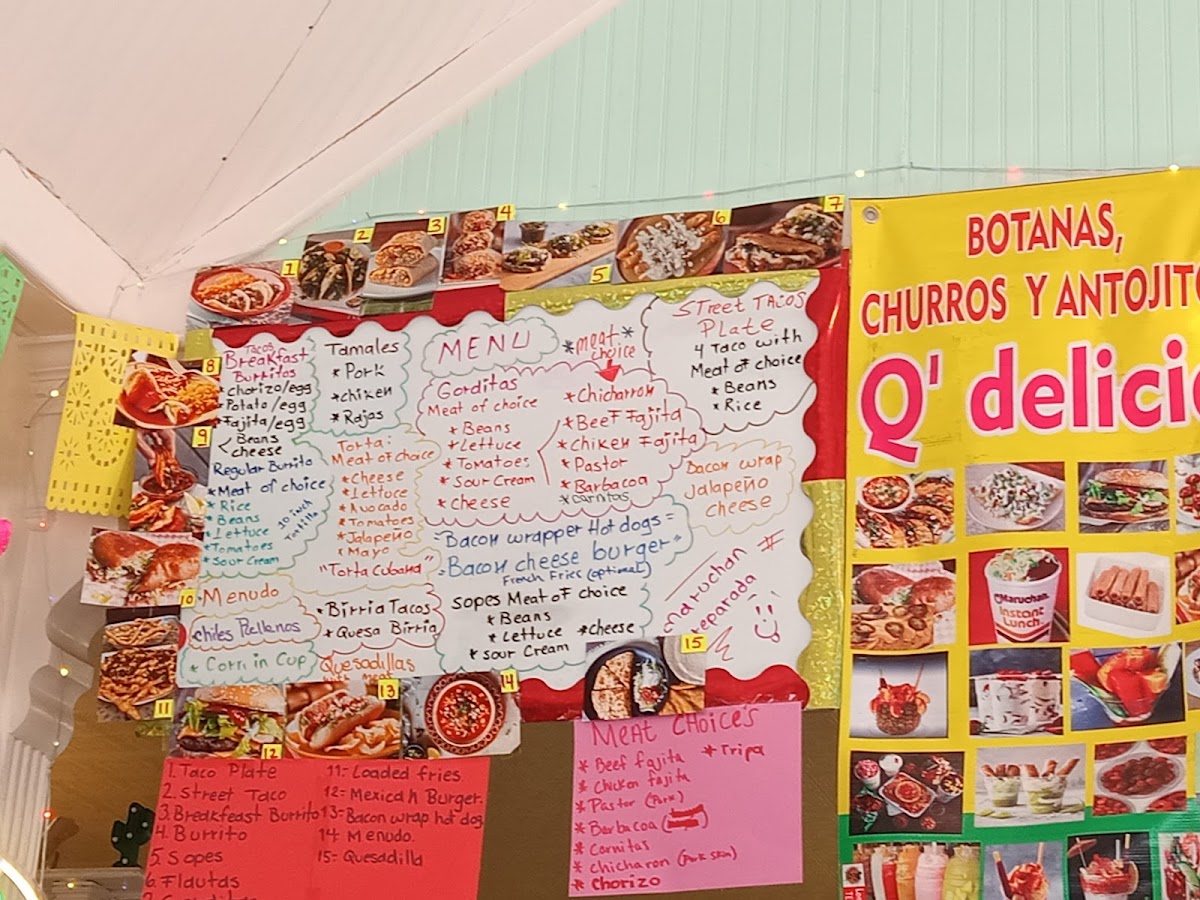 1
2
3
4
5
6
7
8
9
10
11
12
13
14
15
Tacos
Breakfast
Burritos
*chorizo/egg
*Potato/egg
*Fajita/egg
Beans
cheese
Regular Burrito
*Meat of choice
*Rice
*Beans
*Lettuce
*Tomatoes
*Sour Cream
10 inch
Tortilla
Tamales
*Pork
*chiken
*Rajas
MENU
*meat*
choice
Gorditas
Meat of choice
*Beans
*Lettuce
*Tomatoes
*Sour Cream
*cheese
*Chicharron
*Beef Fajita
*chiken Fajita
*Pastor
*Barbacoa
*carnitas
STreet TACOS
Plate
4 Taco with
Meat of choice
*Beans
*Rice
Torta:
Meat of choice
*Cheese
*Lettuce
*Avocado
*Tomatoes
*Jalapeño
*Mayo
"Torta Cubana"
Bacon wrap
Jalapeño
cheese
"Bacon wrapper Hot dogs"
"Bacon cheese burger"
French Fries (optional)
*Menudo
Chiles Rellenos
*Corn in Cup
*Birria Tacos
*Quesa Birria
Quesadillas
Sopes Meat of choice
*Beans
*Lettuce *cheese
*sour Cream
MEAT CHOICE'S
*Beef fajita *Tripa
*Chicken fajita
*Pastor (Pork)
*Barbacoa
*Carnitas
*chicharon (Pork skin)
*Chorizo
1. Taco Plate
2. Street Taco
3. Breakfeast Burrito
4. Burrito
5. Sopes
6. Flautas
11= Loaded fries
12= Mexican Burger.
13= Bacon wrap hot dog
14= Menudo.
15= Quesadilla
BOTANAS,
CHURROS Y ANTOJIT
Q' delici
Maruchan
Instant
Lunch